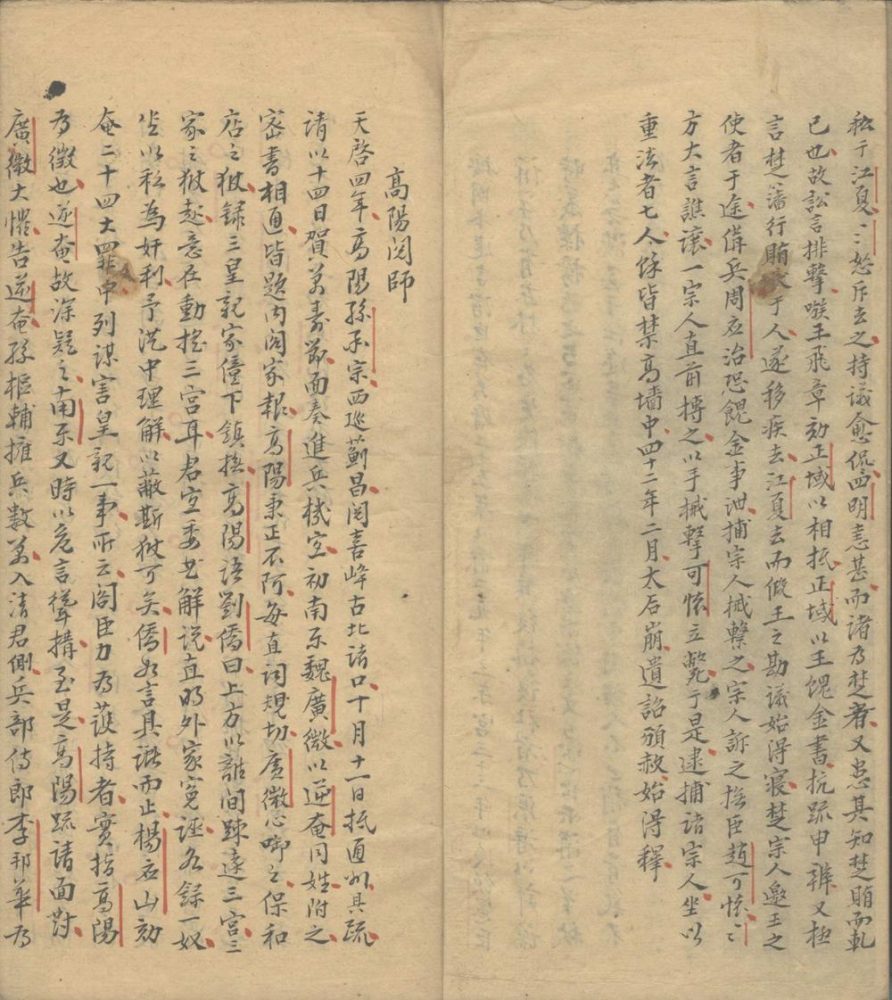 私于江夏江夏怒斥去之持議愈侃四明恚甚而諸為楚者又患其知楚賄而軋
已也故訟言排擊嗾王飛章劾正域以相抵正域以王餽金書抗疏申辨又極
言楚藩行賄狀于人遂移疾去江夏去而假王之勘議始得寢楚宗人邀王之
使者于途備兵周應治恐餽金事泄捕宗人械繫之宗人訴之撫臣趙可懷可懷
方大言譙讓一宗人直前搏之以手械擊可懷立斃于是逮捕諸宗人坐以
重法者七人餘皆禁高墻中四十二年二月太后崩遺詔頒赦始得釋
高陽閱師
天啓四年高陽孫承宗西巡薊昌閱喜峰古北諸口十月十一日抵通州具疏
請以十四日賀萬壽節面奏進兵機宜初南樂魏廣微以逆奄同姓附之
密書相通皆題內閣家報高陽秉正不阿每直詞規切廣微心啣之保和
店之獄錄三皇親家僮下鎮撫高陽語劉僑曰上方以誰間疎遠三宮三
家之獄起意在動搖三宮耳君宜委曲解說直明外家冤誣名錄一奴
坐以私為奸利予從中理解以蔽斯獄可矣僑如言具讞而止楊應山劾
奄二十四大罪中列謀害皇親一事所云閣臣力為護持者實指高陽
為微也逆奄故深疑之南樂又時以危言聳搆至是高陽疏請面對
廣微大懼告逆奄孫樞輔擁兵數萬入清君側兵部侍郎李邦華為